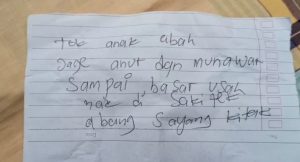 tek anak abah
jage anut dan munawar
sampai basar usah
nak di sakitek
abang sayang kitak